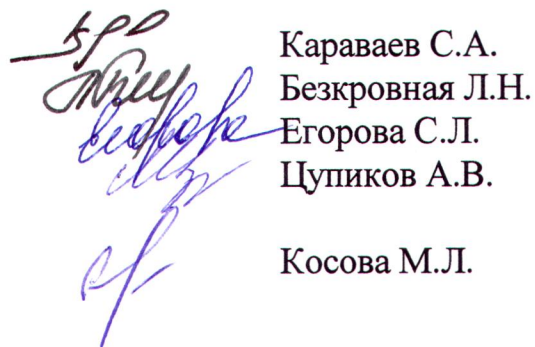 Караваев С.А.
Безкровная Л.Н.
Егорова С.Л.
Цупиков А.В.
Косова М.Л.